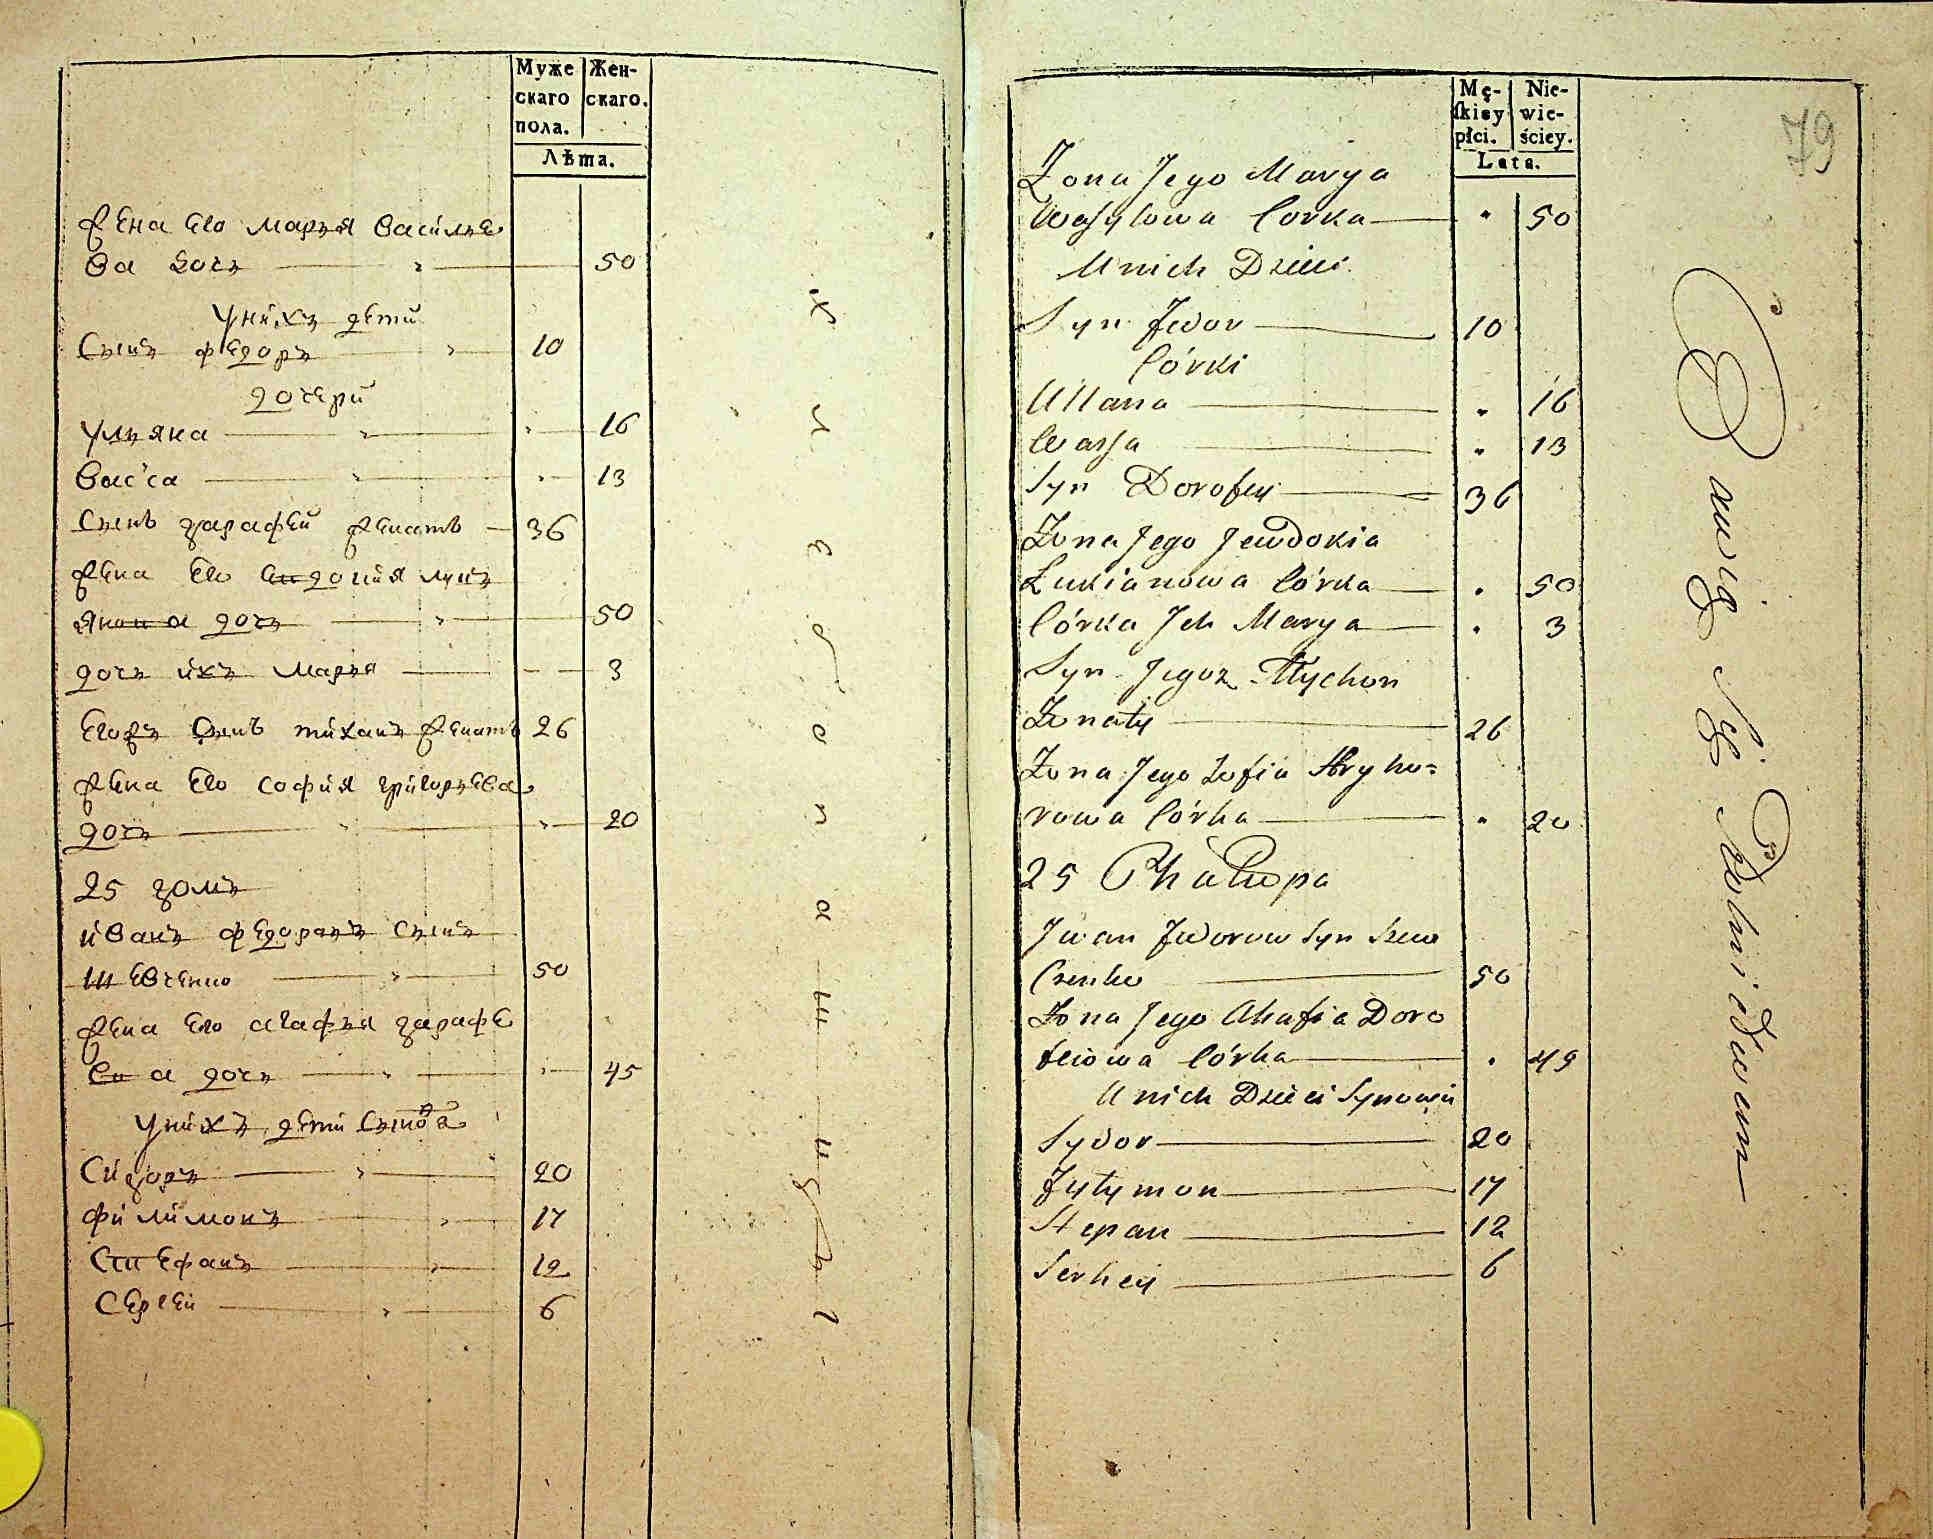 Муже Жен-
скаго скаго.
пола.
Лѣта.
Жена Его Марья Василье
ва дочь 50
У нихъ дети
Сынъ Федоръ 10
дочери
Ульяна 16
Васса 13
Сынъ Дарафей женатъ 36
Жена Его Евдокія Лукъ
янова дочь 50
дочь ихъ Марья 3
Егоръ Сынъ Тиханъ женатъ 26
Жена Его София Григорьева
дочь 20
25 домъ
Иванъ Федоровъ Сынъ
Шевченко 50
Жена Его Агафья Дарафе
ева дочь 45
У нихъ дети Сынова
Сидоръ 20
Филимонъ 17
Стефанъ 12
Сергей 6
79
Mę- Nie-
ſkiey wie-
płci. ściey.
Lata.
Żona Jego Marya
Wasylowa Corka 50
U nich Dzieci
Syn Fedor 10
Córki
Ullana 16
Wassa 13
Syn Dorofey 36
Żona Jego Jewdokia
Łukianowa Córka 50
Córka Ich Marya 3
Syn Jegoż Tychon
Żonaty 26
Żona Jego Zofia Hryho=
rowa Córka 20
25 Chałupa
Iwan Fedorow Syn Szew
Czenko 50
Żona Jego Ahafia Doro
feiowa Córka 45
U nich Dzieci Synowie
Sydor 20
Fyłymon 17
Stepan 12
Serhey 6